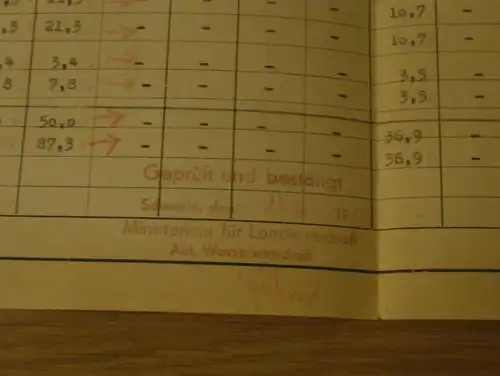 ,3 21,3 → - - - - 10,7 -
10,7 -
,4 3,4 → - - - - 3,5 -
8 7,8 → - - - - 3,5 -
50,0 → - - - - 36,9 -
87,3 → - - - - 36,9 -
Geprüft und bestätigt
Schwerin, den 19
Ministerium für
Abt. Wasserwirtschaft